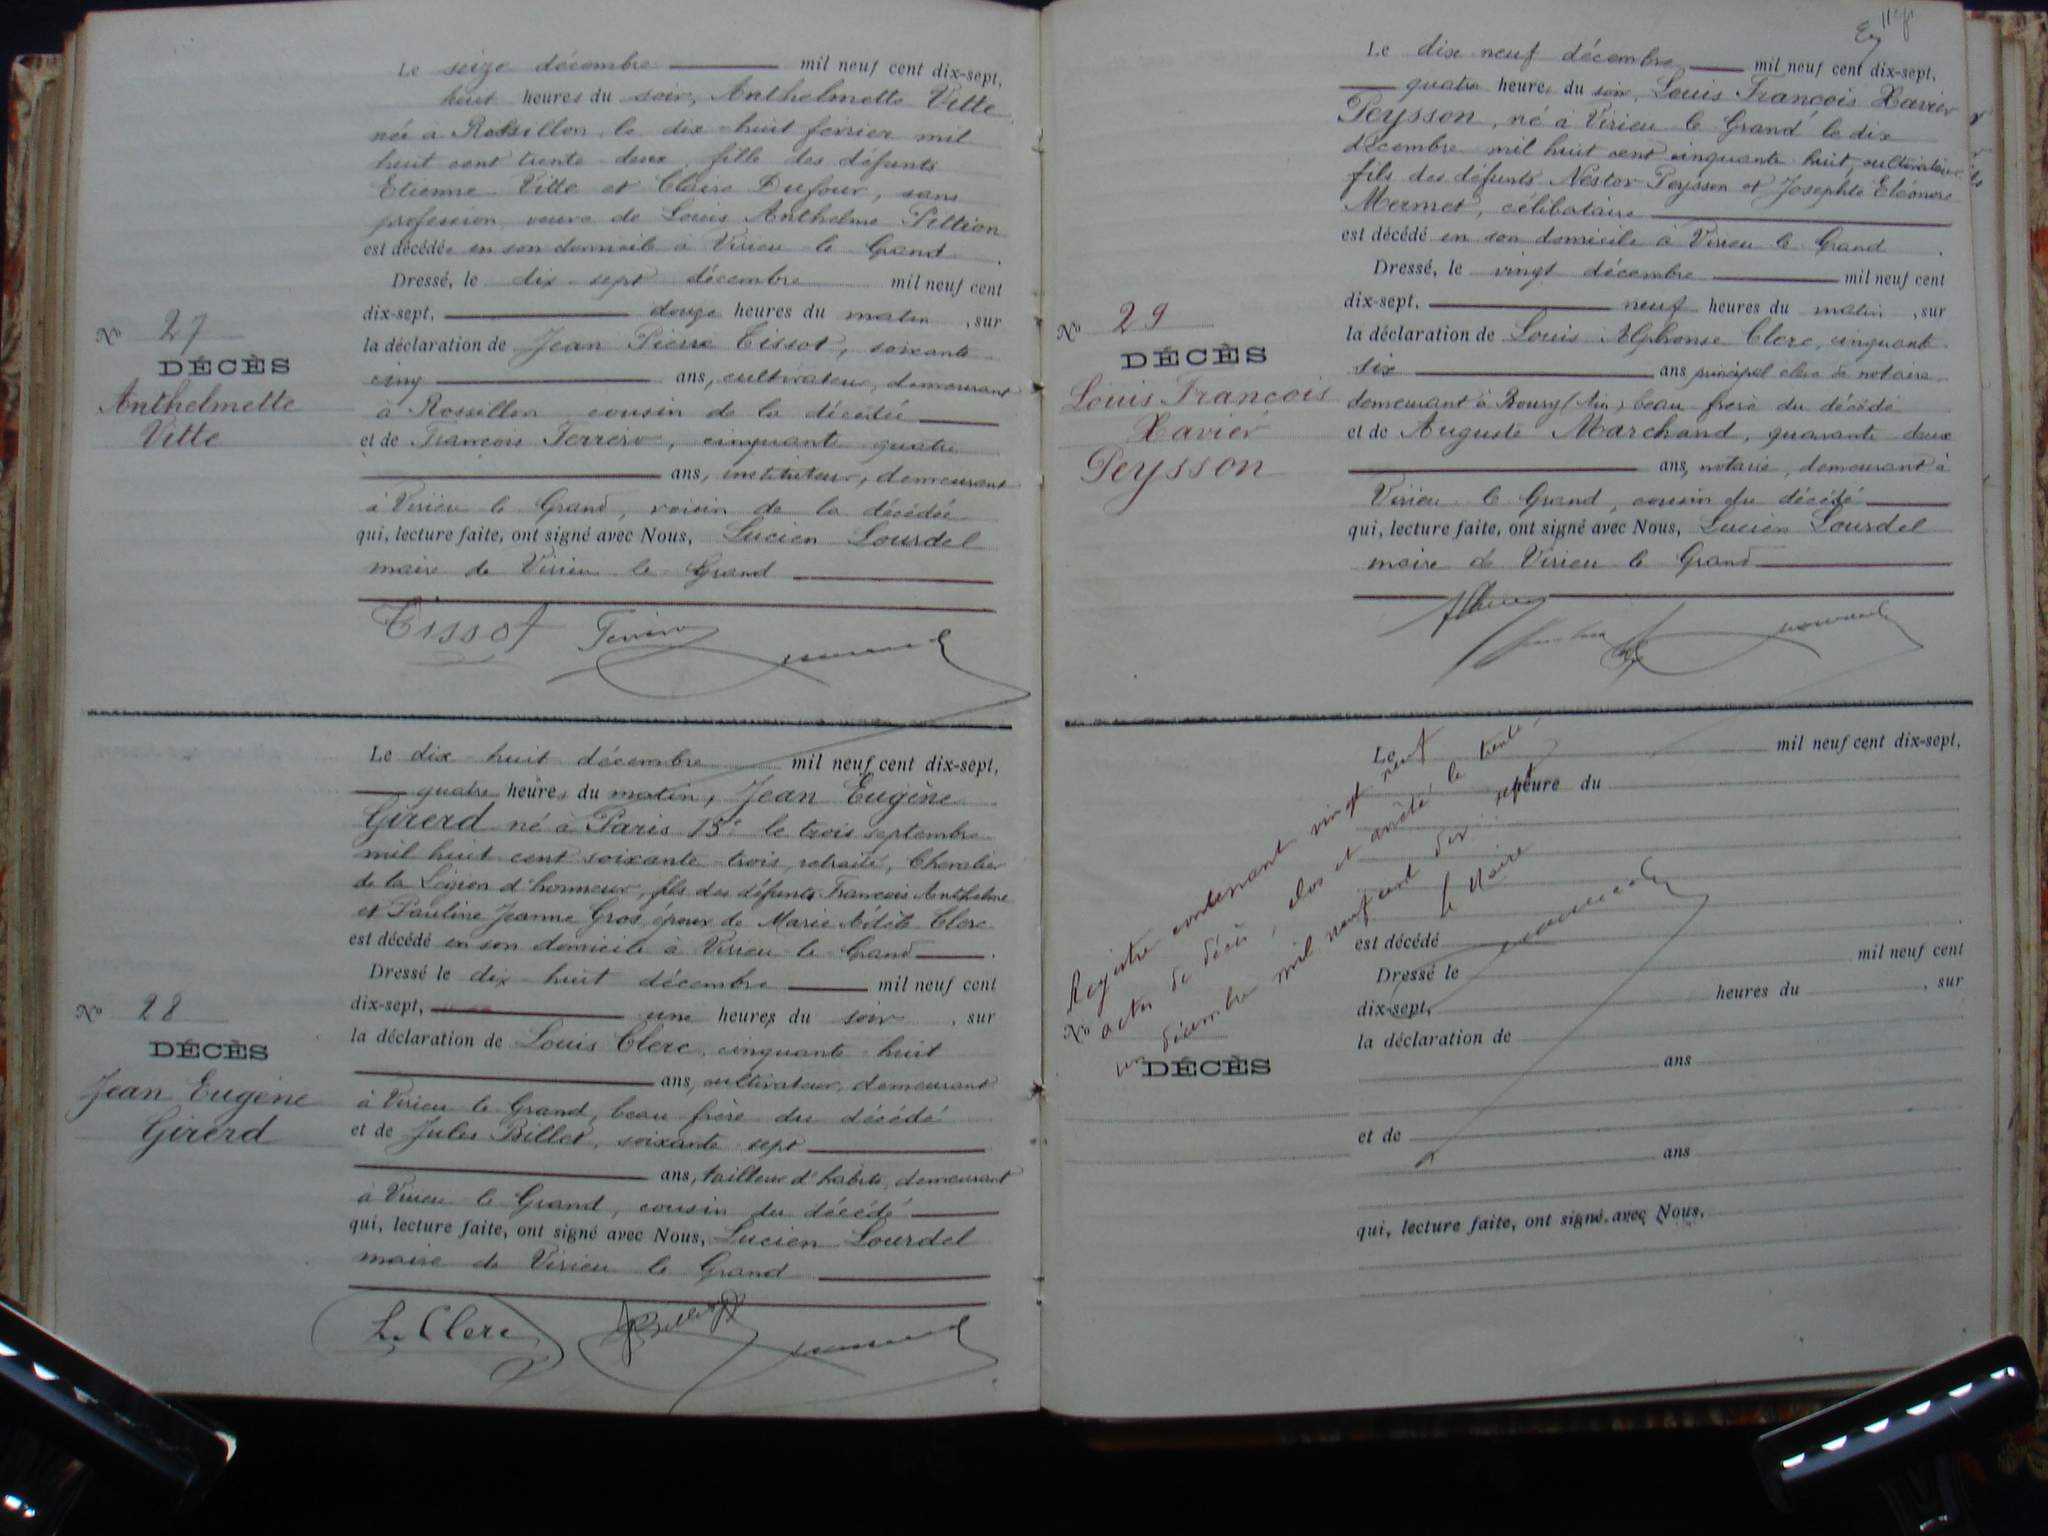 Le seize décembre mil neuf cent dix-sept,
huit heures du soir, Anthelmette Vitte
née à Rossillon, le dix-huit février mil
huit cent trente-deux, fille des défunts
Etienne Vitte et Claire Dufour, sans
profession, veuve de Louis Anthelme Pittion
est décédée en son domicile à Virieu le Grand.
Dressé, le dix-sept décembre mil neuf cent
dix-sept, douze heures du matin, sur
la déclaration de Jean Pierre Tissot, soixante
cinq ans, cultivateur, demeurant
à Rossillon cousin de la décédée
et de François Ferrero, cinquante quatre
ans, instituteur, demeurant
à Virieu le Grand, voisin de la décédée
qui, lecture faite, ont signé avec Nous, Lucien Lourdel
maire de Virieu le Grand
Tissot
No 27
DÉCÈS
Anthelmette
Vitte
Le dix-huit décembre mil neuf cent dix-sept,
quatre heures du matin, Jean Eugène
Girerd né à Paris 15e le trois septembre
mil huit cent soixante-trois, retraité, Chevalier
de la Légion d'honneur, fils des défunts François Anthelme
et Pauline Jeanne Gros, époux de Marie Adèle Clerc
est décédé en son domicile à Virieu le Grand.
Dressé le dix-huit décembre mil neuf cent
dix-sept, une heures du soir, sur
la déclaration de Louis Clerc, cinquante-huit
ans, cultivateur, demeurant
à Virieu le Grand, beau frère du décédé
et de Jules Billet, soixante-sept
ans, tailleur d'habits, demeurant
à Virieu le Grand, cousin du décédé
qui, lecture faite, ont signé avec Nous, Lucien Lourdel
maire de Virieu le Grand
L. Clerc
No 28
DÉCÈS
Jean Eugène
Girerd
Le dix-neuf décembre mil neuf cent dix-sept,
quatre heures du soir, Louis François Xavier
Peysson, né à Virieu le Grand le dix
décembre mil huit cent cinquante huit, cultivateur
fils des défunts Nestor Peysson et Josephte Eléonore
Mermet, célibataire
est décédé en son domicile à Virieu le Grand.
Dressé, le vingt décembre mil neuf cent
dix-sept, neuf heures du matin, sur
la déclaration de Louis Alphonse Clerc, cinquante
six ans principal clerc de notaire
demeurant à Bourg (Ain), beau frère du décédé
et de Auguste Marchand, quarante deux
ans, notaire, demeurant à
Virieu le Grand, cousin du décédé
qui, lecture faite, ont signé avec Nous, Lucien Lourdel
maire de Virieu le Grand
No 29
DÉCÈS
Louis François
Xavier
Peysson
Registre contenant vingt neuf
actes de décès, clos et arrêté le trente
un décembre mil neuf cent dix sept
le Maire
Le mil neuf cent dix-sept,
heure du
est décédé
Dressé le mil neuf cent
dix-sept, heures du , sur
la déclaration de
ans
et de
ans
qui, lecture faite, ont signé avec Nous,
No
DÉCÈS